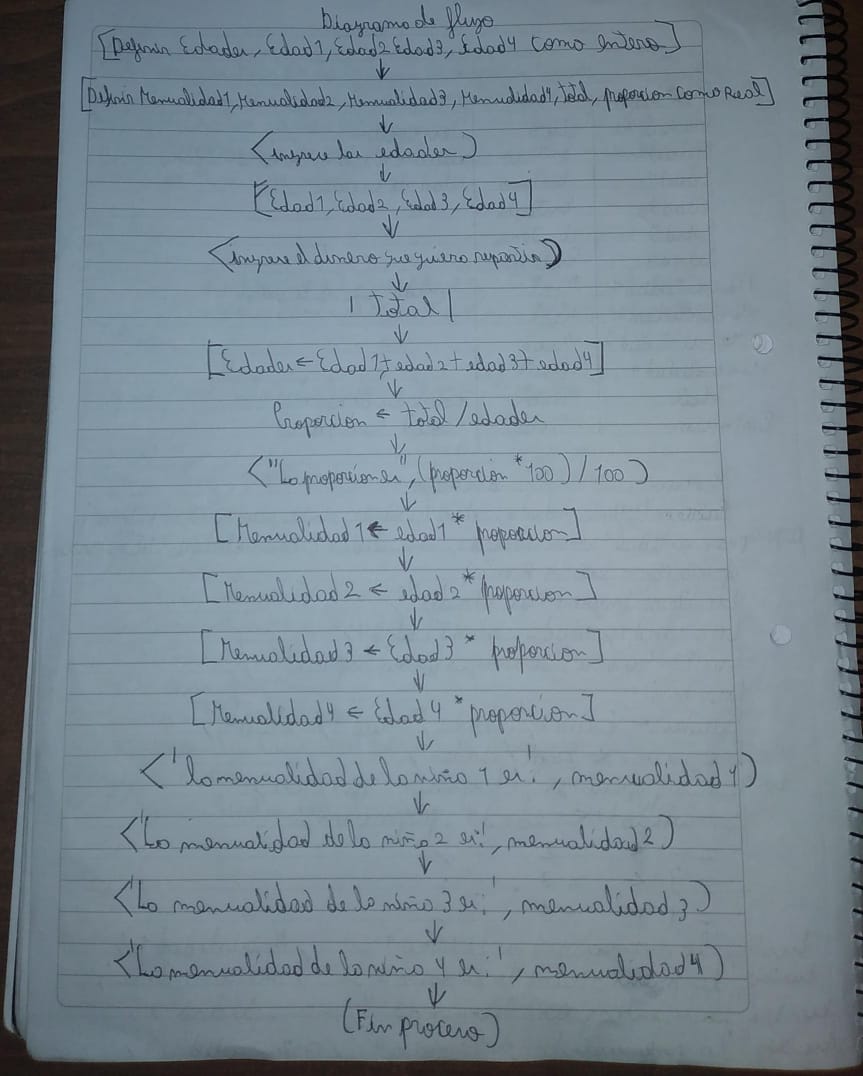 Diagrama de flujo
[Definir Edades, Edad1, Edad2 Edad3, Edad4 Como entero]
[Definir Mensualidad1, Mensualidad2, Mensualidad3, Mensualidad4, total, proporcion Como Real]
<ingrese las edades)
[Edad1, Edad2, Edad3, Edad4]
<ingrese el dinero que quiero repartir)
| total |
[Edades ← Edad1 + edad2 + edad3 + edad4]
Proporcion ← total / edades
<"La proporcion es", (proporcion * 100) / 100)
[Mensualidad1 ← edad1 * proporcion]
[Mensualidad2 ← edad2 * proporcion]
[Mensualidad3 ← Edad3 * proporcion]
[Mensualidad4 ← Edad4 * proporcion]
<'la mensualidad de la niña 1 es:', mensualidad1)
<'La mensualidad de la niña 2 es:', mensualidad2)
<'La mensualidad de la niña 3 es:', mensualidad3)
<'La mensualidad de la niña 4 es:', mensualidad4)
(Fin proceso)